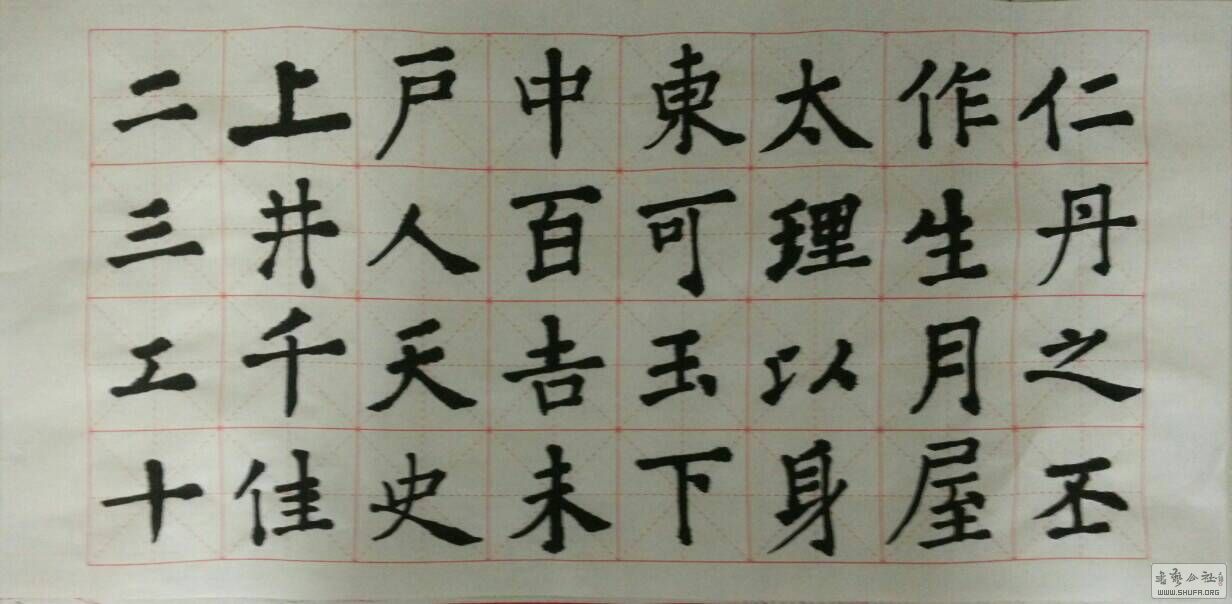 仁丹之丕
作生月屋
太理以身
東可玉下
中百吉未
戸人天史
上井千佳
二三工十
WWW.SHUFA.ORG